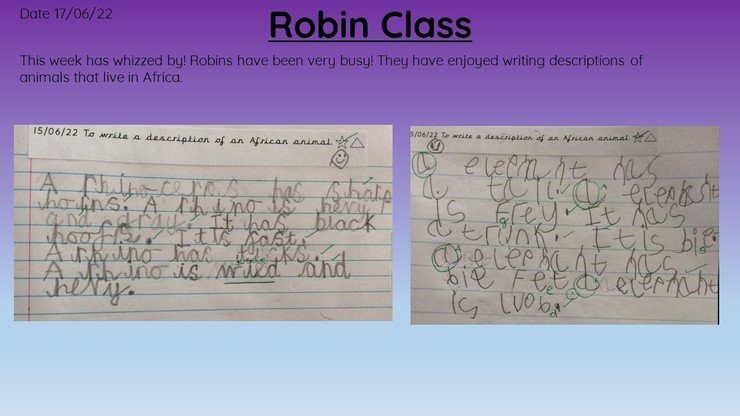 Date 17/06/22
Robin Class
This week has whizzed by! Robins have been very busy! They have enjoyed writing descriptions of
animals that live in Africa.
15/06/22 To write a description of an African animal.
A rhinoceros has sharp
horns. A rhino is hevy
and gray. It has black
It is fast.
A rhino has
A rhino is and
hevy.
5/06/22 To write a description of an African animal
a elephant has
a tail. a elephant
is grey. It has
a trunk. It is big.
a elephant has
big Fet. a elephant
is